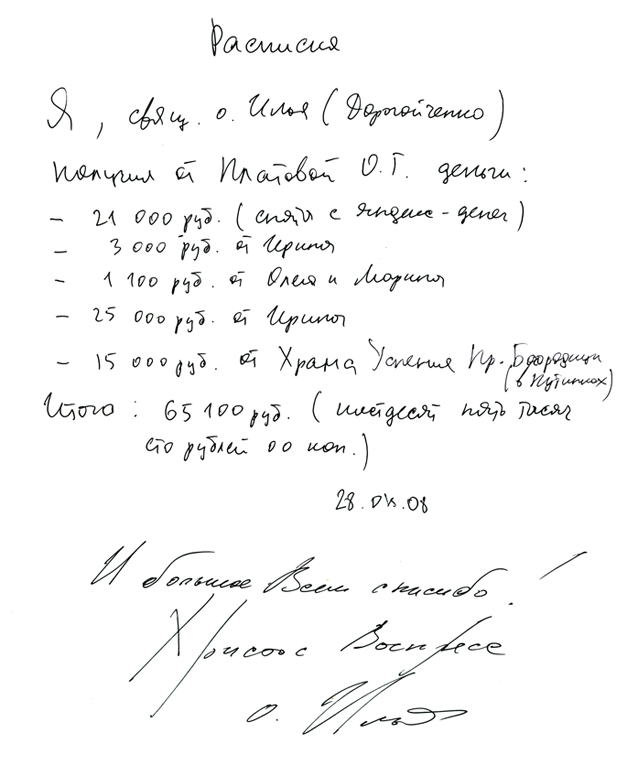 Расписка
Я, свящ. о. Илья (Дорогойченко)
получил от Платовой О.Г. деньги:
- 21 000 руб. (сняты с Яндекс-денег)
- 3 000 руб. от Ирины
- 1 100 руб. от Олега и Марины
- 25 000 руб. от Ирины
- 15 000 руб. от Храма Успения Пр. Богородицы
(в Путинках)
Итого: 65 100 руб. (шестдесят пять тысяч
сто рублей 00 коп.)
28.04.08
И большое Всем спасибо!
Христос Воскресе
о. Илья